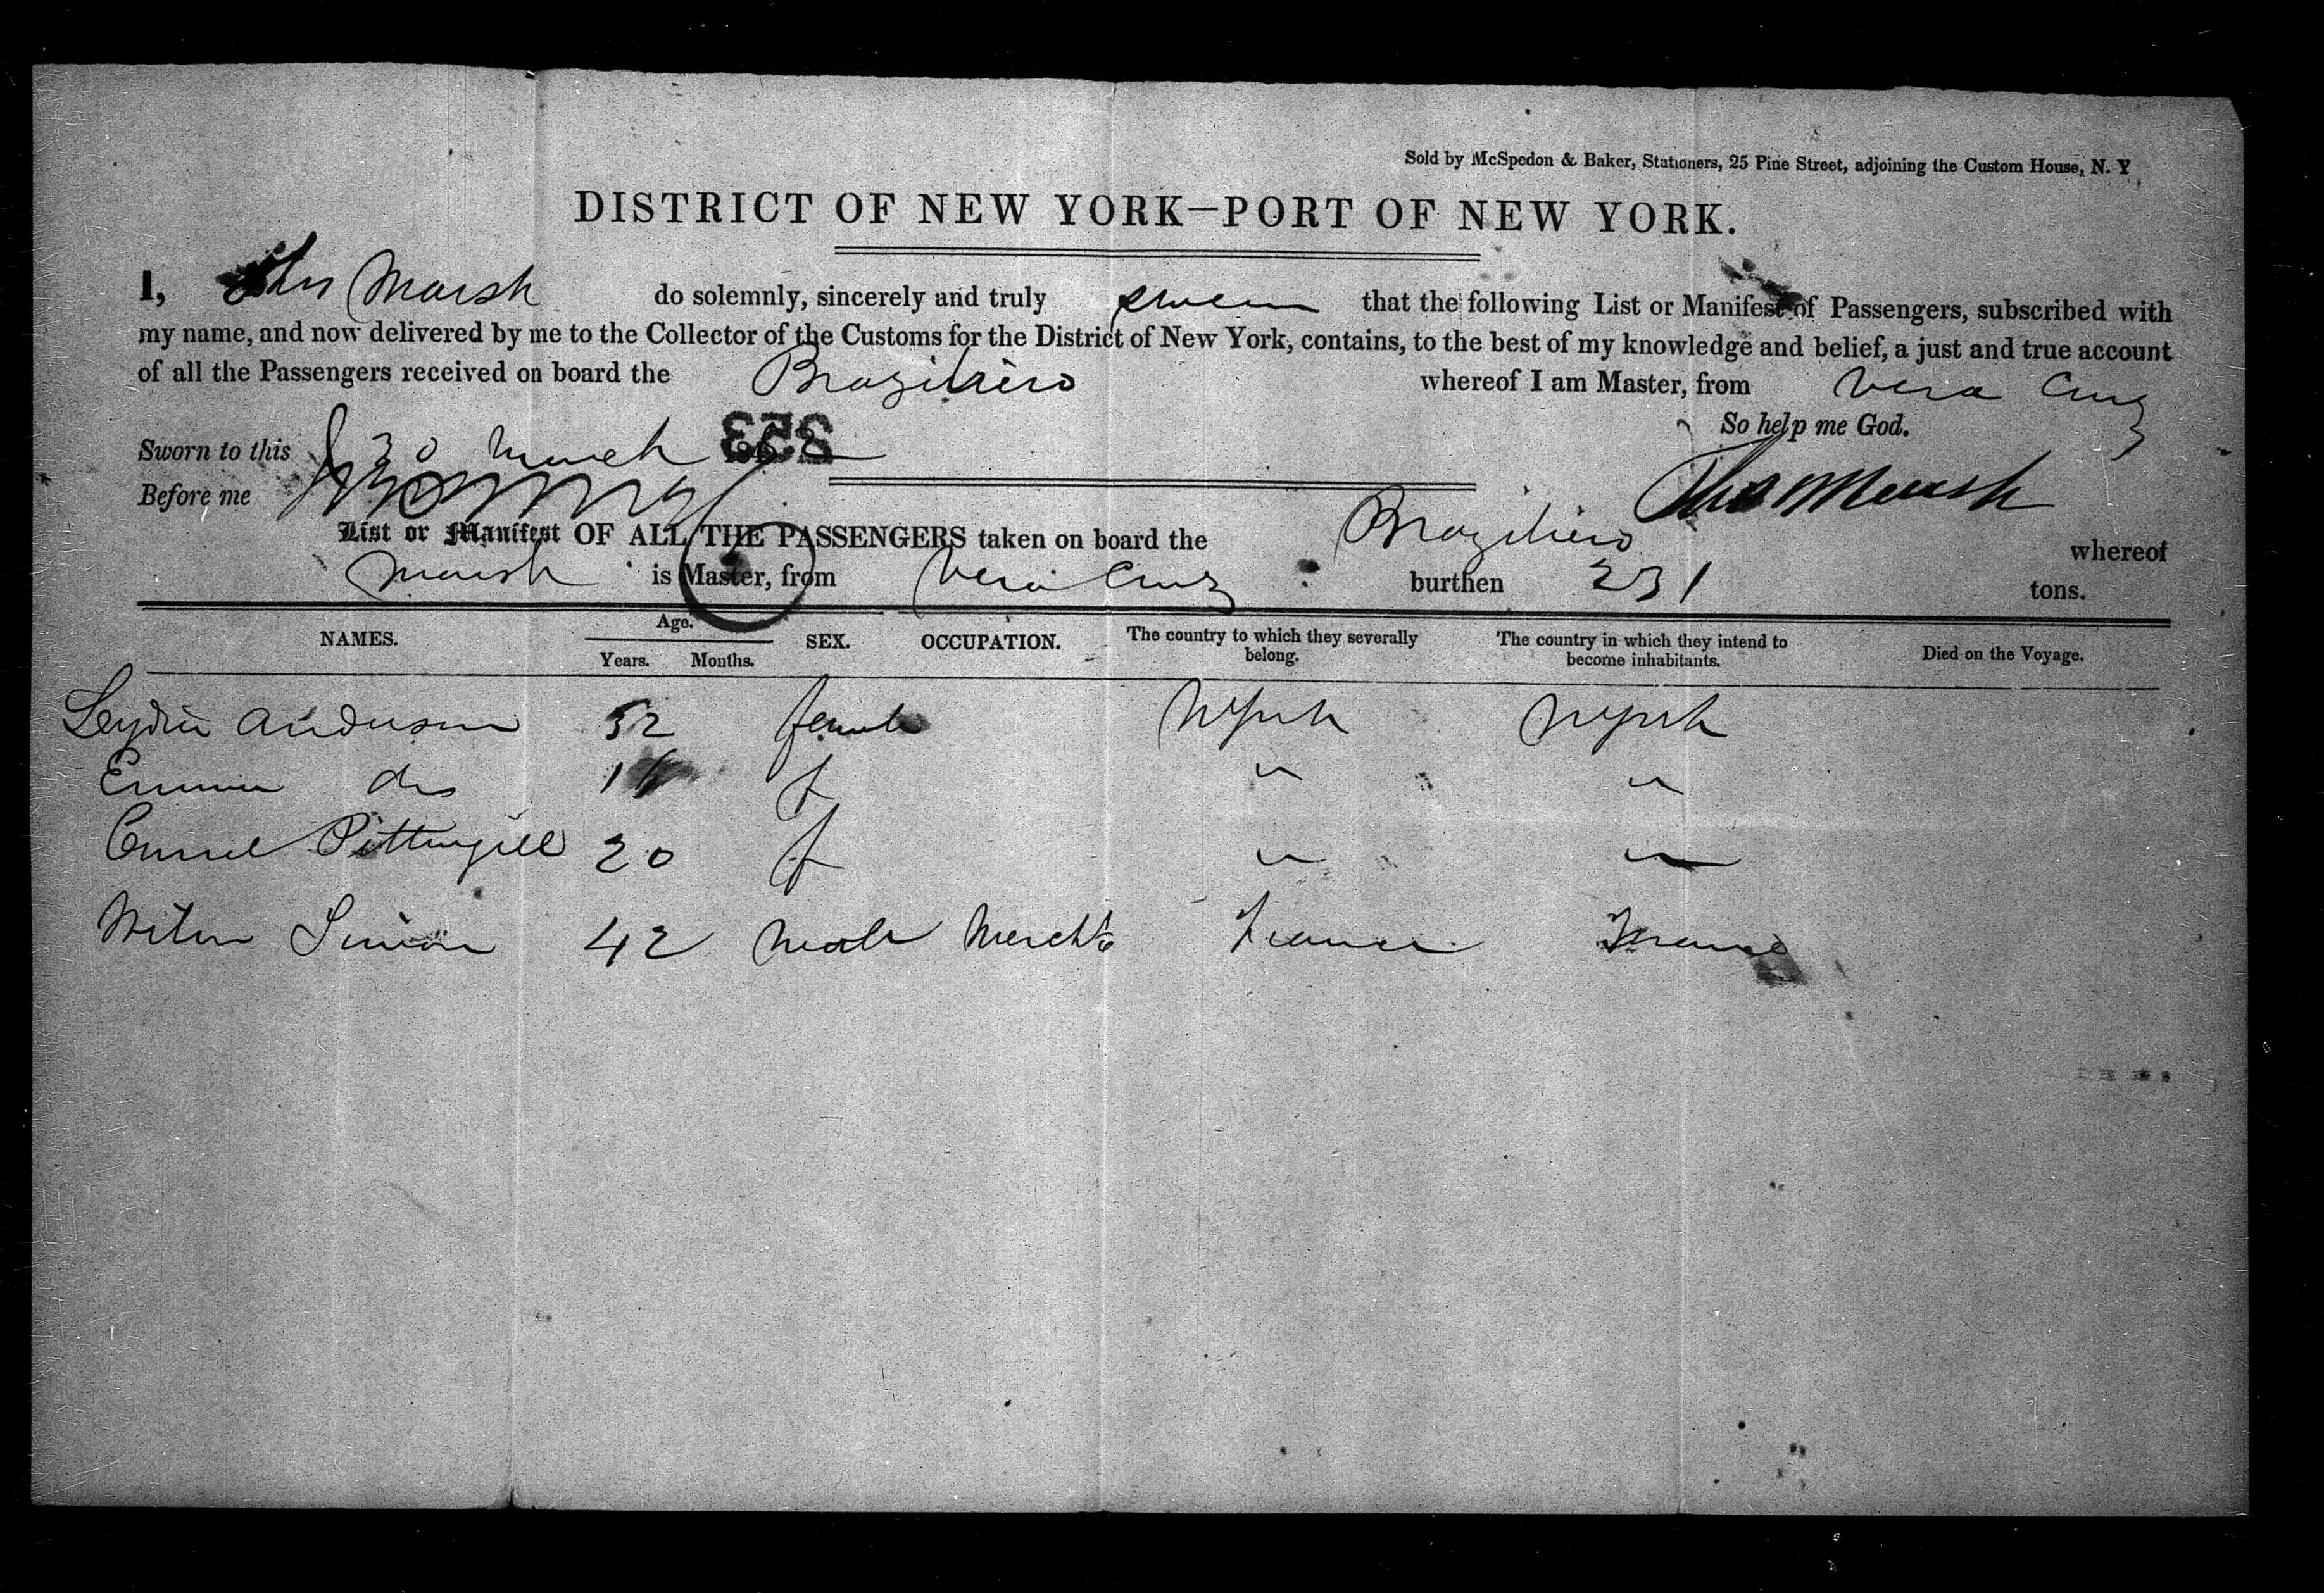 Sold by McSpedon & Baker, Stationers, 25 Pine Street, adjoining the Custom House, N. Y
DISTRICT OF NEW YORK—PORT OF NEW YORK.
I, Thos Marsh do solemnly, sincerely and truly swear that the following List or Manifest of Passengers, subscribed with
my name, and now delivered by me to the Collector of the Customs for the District of New York, contains, to the best of my knowledge and belief, a just and true account
of all the Passengers received on board the Braziliero whereof I am Master, from Vera Cruz
So help me God.
Sworn to this 30 March 186
Before me
Thos Marsh
List or Manifest OF ALL THE PASSENGERS taken on board the Braziliero whereof
Marsh is Master, from Vera Cruz burthen 231 tons.
NAMES. Age. Years. Months. SEX. OCCUPATION. The country to which they severally belong. The country in which they intend to become inhabitants. Died on the Voyage.
Leydia Anderson 52 female NYork NYork
Emma do f " "
Pittengill 20 f " "
Simon 42 Male Mercht France France